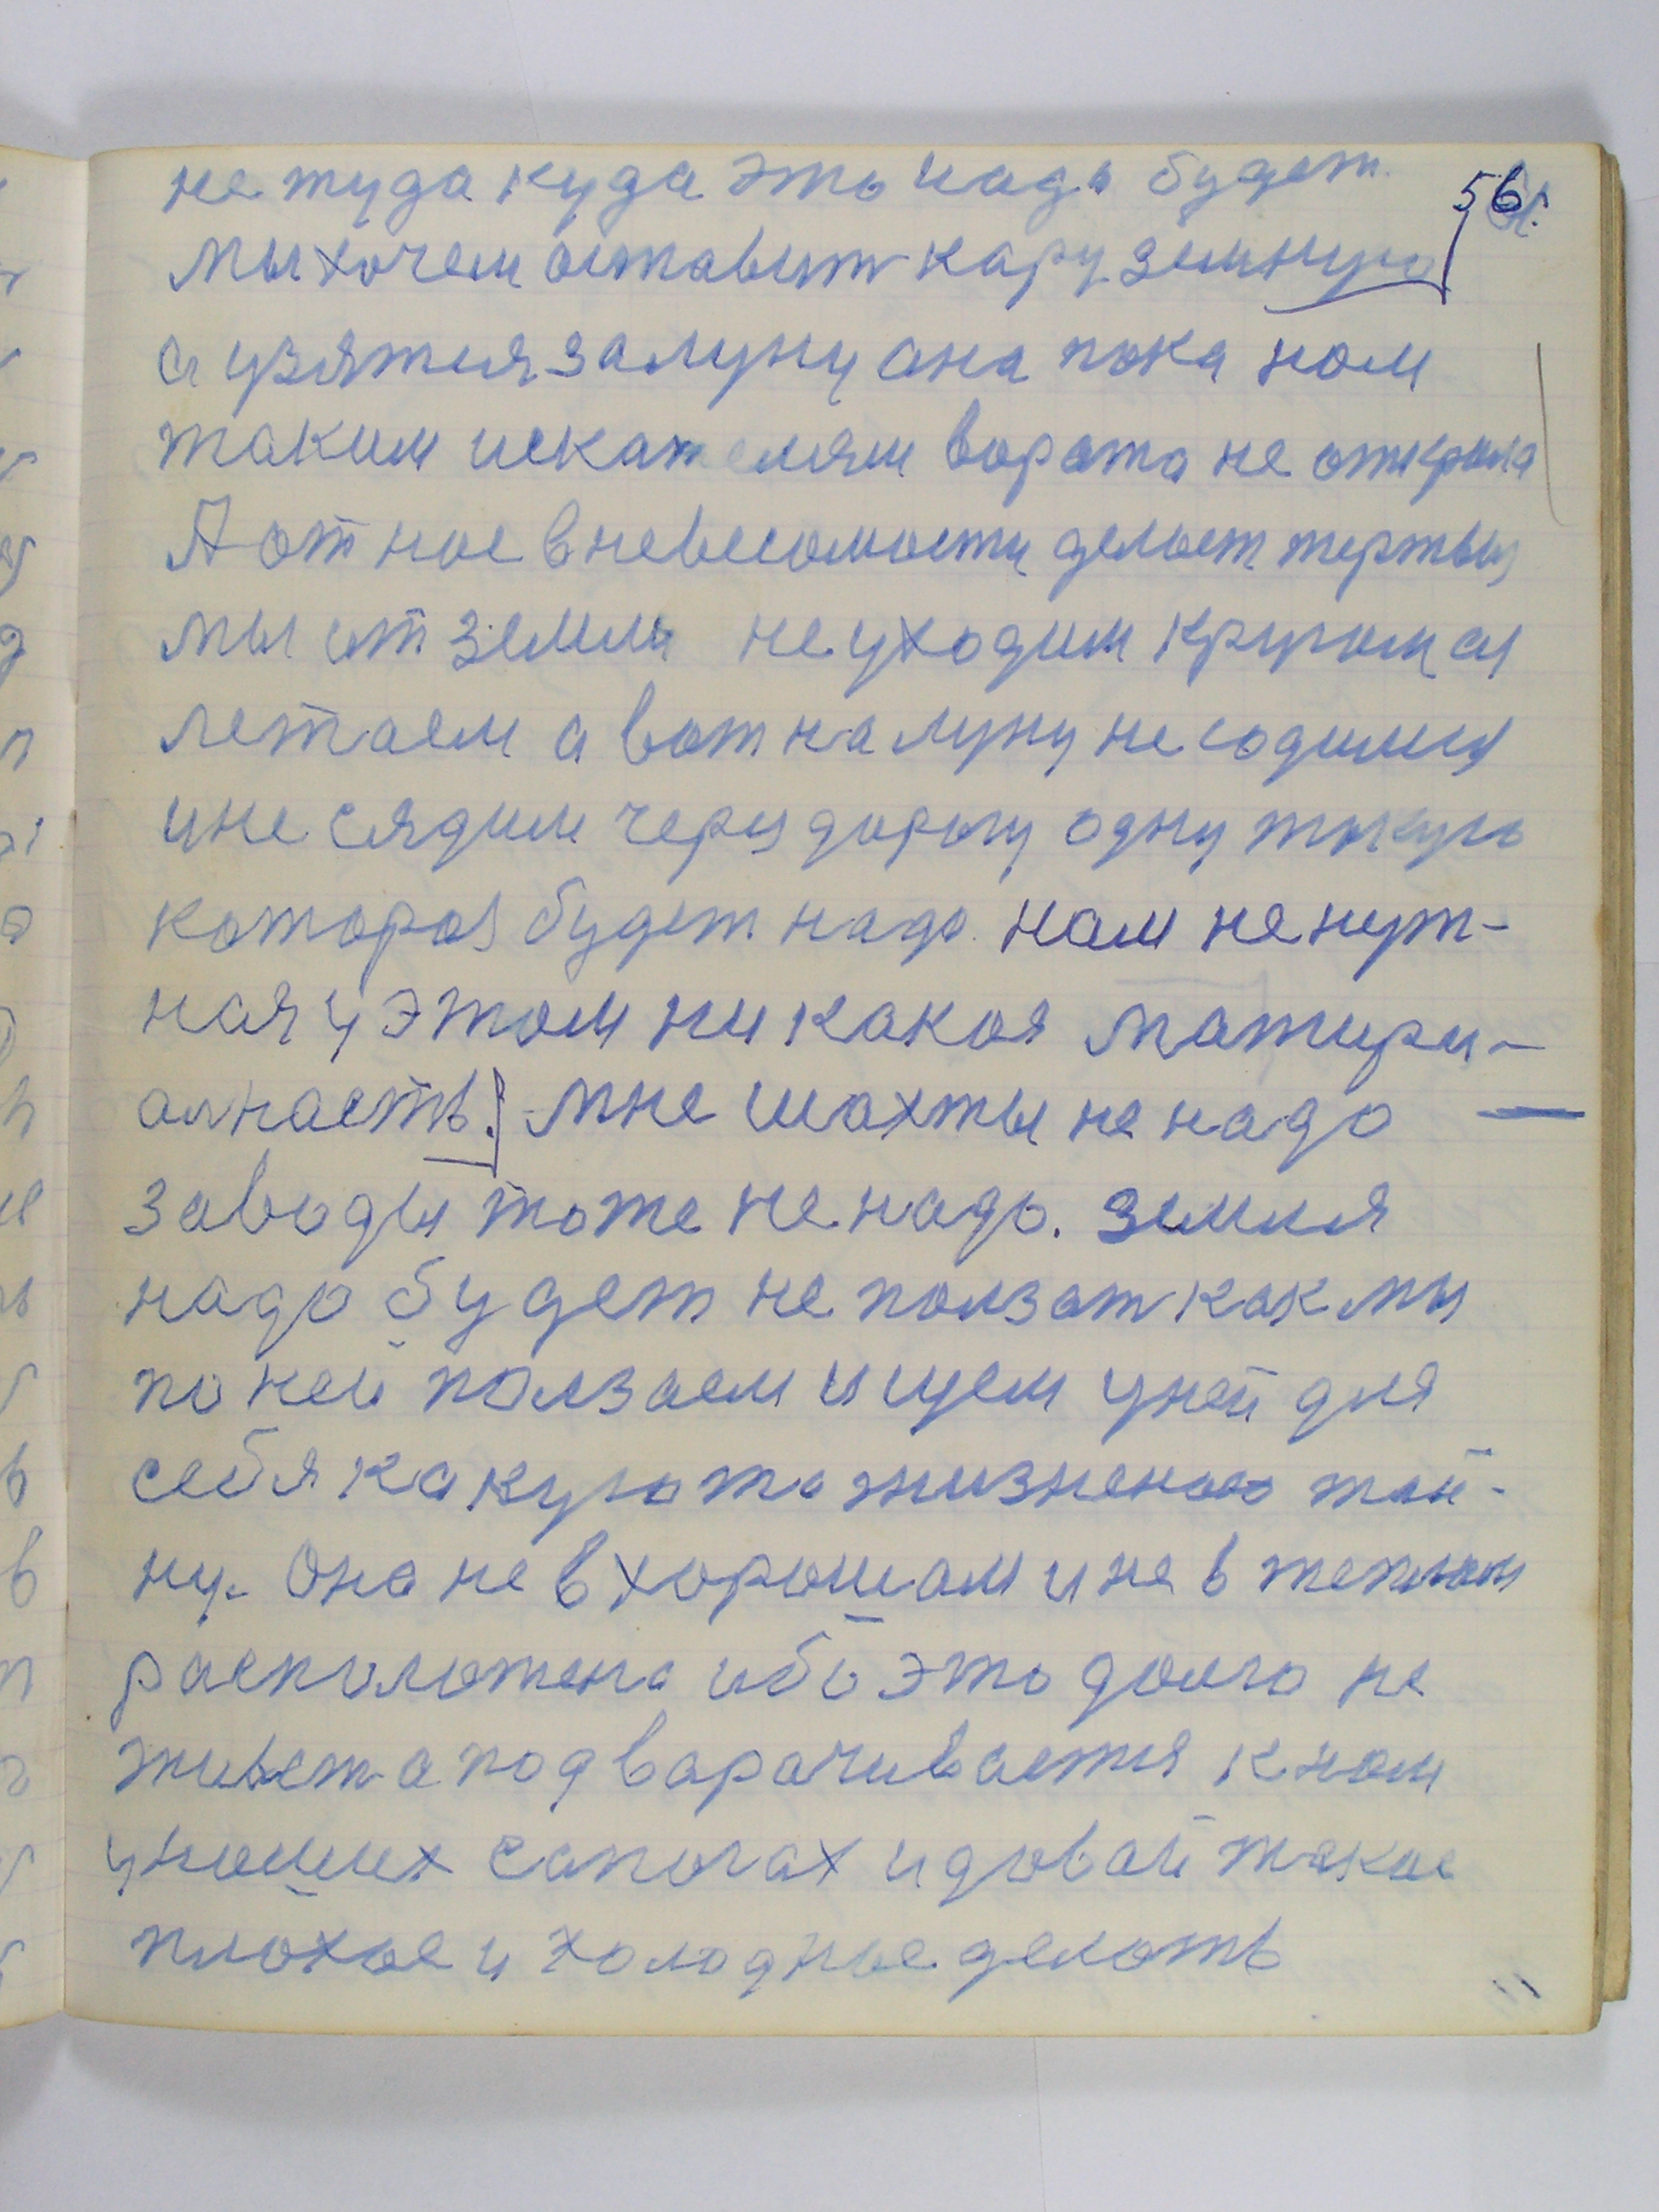 не туда куда это надо будет. 56
мы хочем оставит кару земную
а узятся за луну она пока нам
таким искателям ворота не открыла
А от нас в невесомости делает жертвы
мы от земли не уходим кругом ей
летаем а вот на луну не содимся
и не сядим через дорогу одну такую
которая будет надо. нам не нуж-
ная у этом ни какая матири-
алнасть. мне шахты не надо
заводы тоже не надо. земля
надо будет не ползат как мы
по ней ползаем ищем у ней для
себя какую то жизненою тай-
ну. Она не в хорошом и не в теплом
расположена ибо это долго не
живет а подварачивается к нам
у наших сапогах и довай такое
плохое и холодное делать